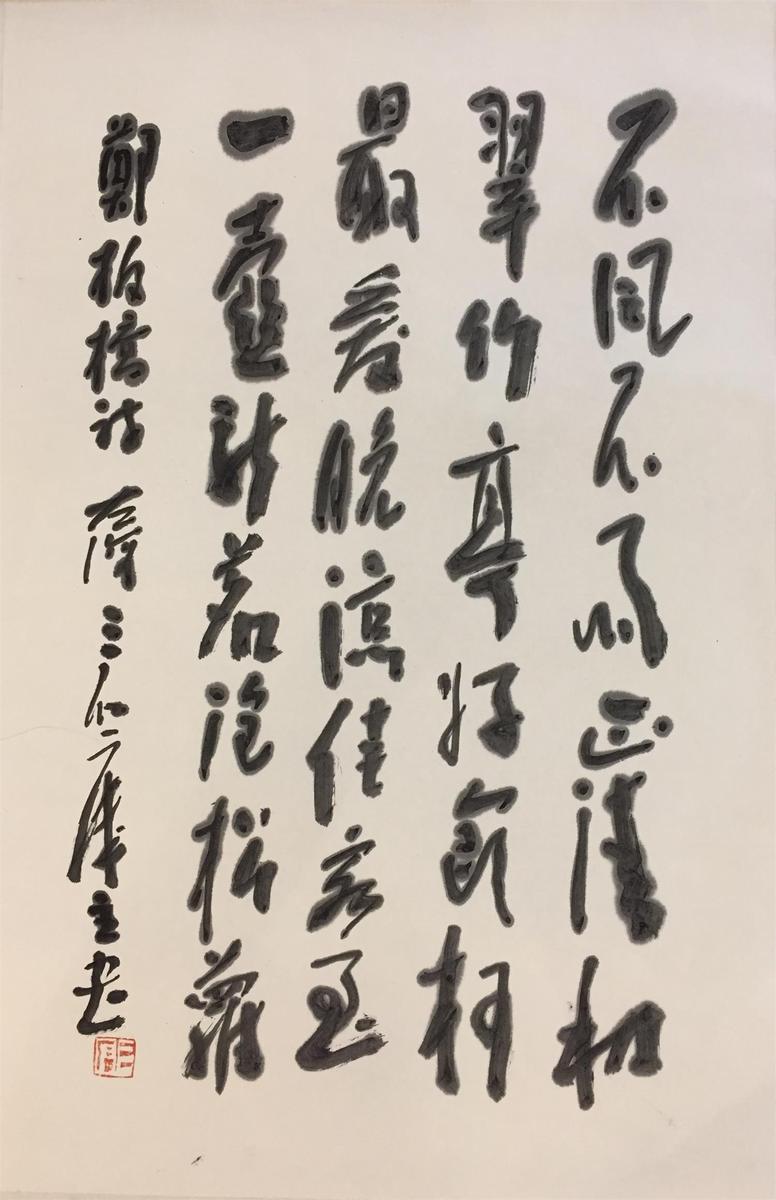 不風不雨正清和
翠竹亭亭好節柯
最愛晚涼佳客至
一壺新茗泡松蘿
鄭板橋詩 三 主書